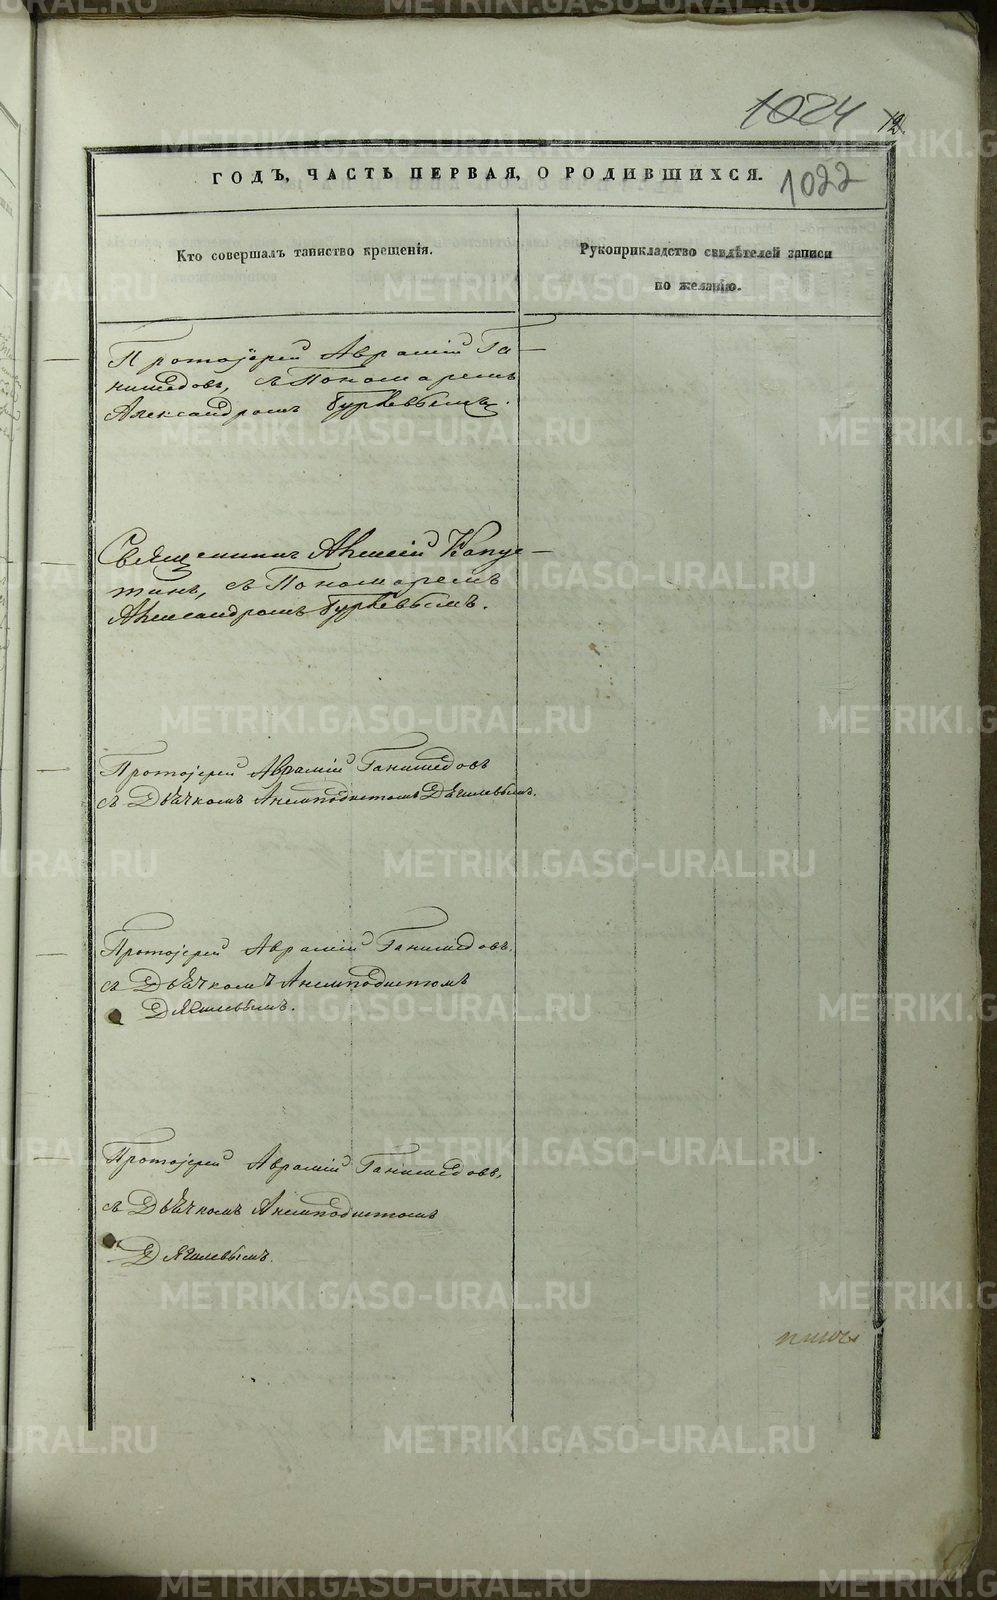 1024 12.
ГОДЪ, ЧАСТЬ ПЕРВАЯ, О РОДИВШИХСЯ. 1022
Кто совершалъ таинство крещенія.
Рукоприкладство свидѣтелей записи
по желанію.
Протоіерей Аврамій Га-
нимедовъ, съ Пономаремъ
Александромъ
Священникъ Алексій Капус-
тинъ, съ Пономаремъ
Александромъ
Протоіерей Аврамій Ганимедовъ
съ Дьячкомъ Анемподистомъ Дягилевымъ.
Протоіерей Аврамій Ганимедовъ.
съ Дьячкомъ Анемподистомъ
Дягилевымъ.
Протоіерей Аврамій Ганимедовъ,
съ Дьячкомъ Анемподистомъ
Дягилевымъ.
METRIKI.GASO-URAL.RU